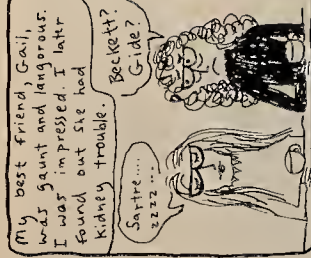 My best friend Gail,
was gaunt and langorous.
I was impressed. I later
found out she had
kidney trouble.
Beckett?
Gide?
Sartre....
zzzz...